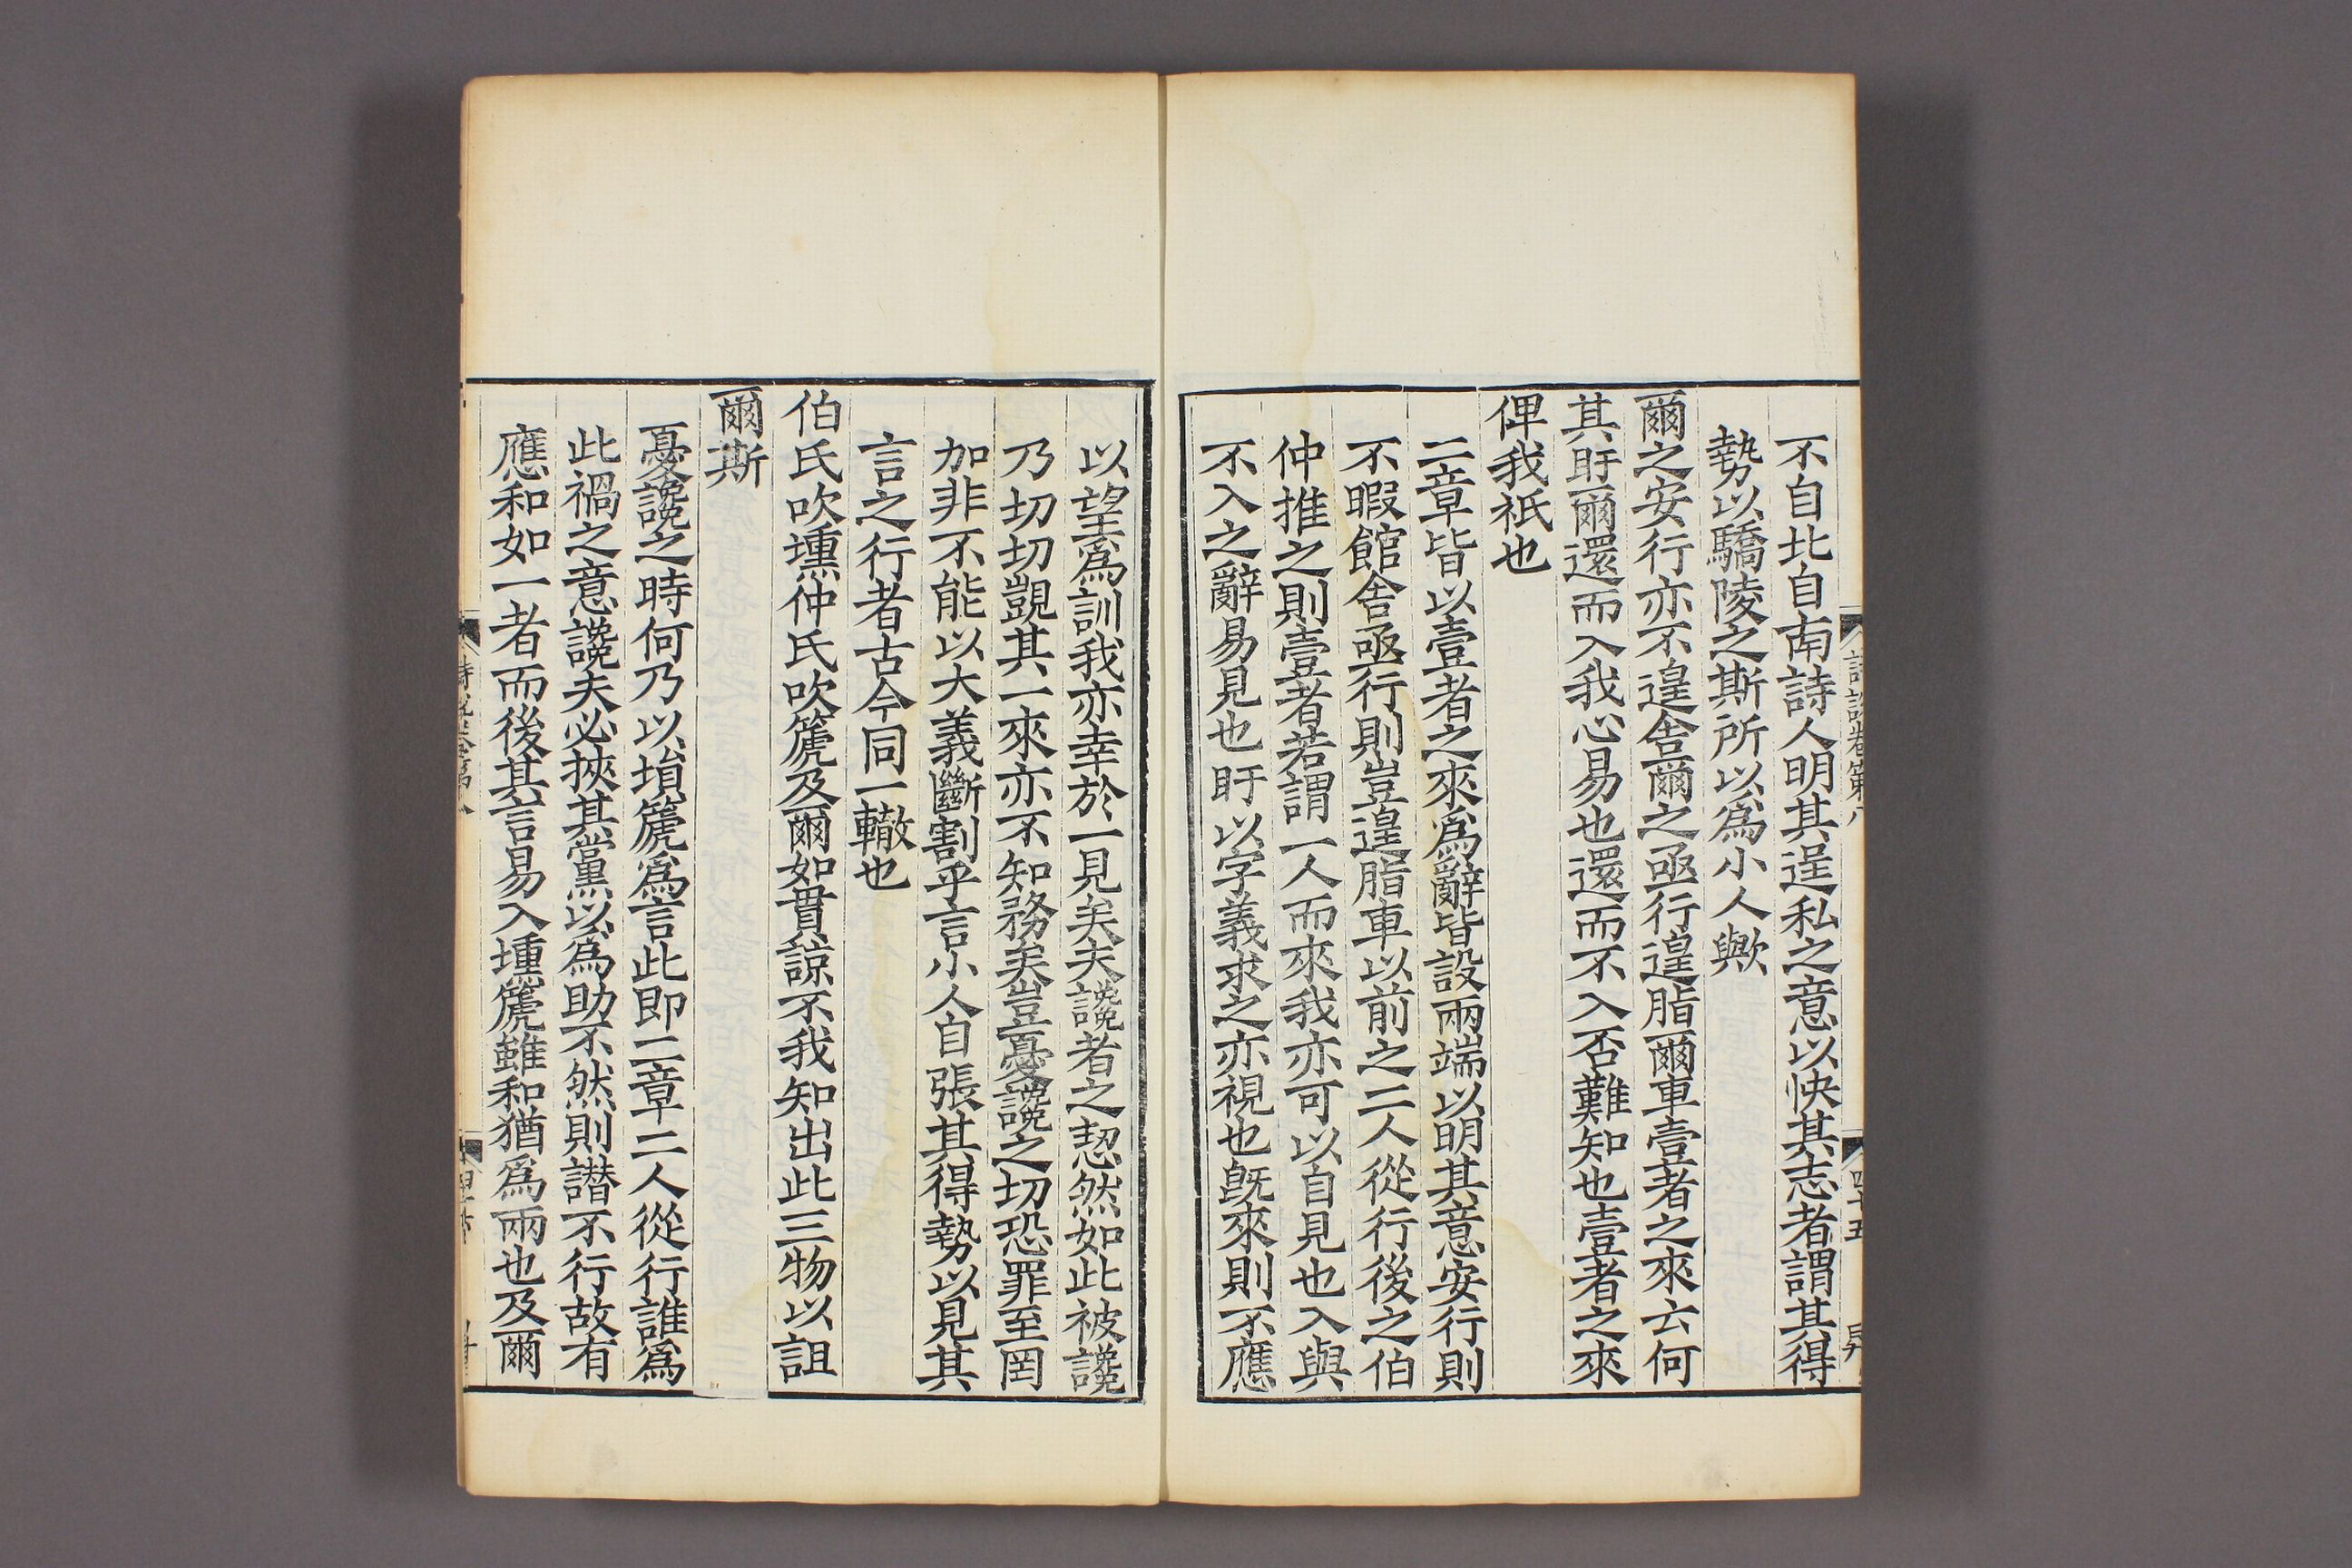 不自北自南詩人明其逞私之意以快其志者謂其得
勢以驕陵之斯所以爲小人歟
爾之安行亦不遑舍爾之亟行遑脂爾車壹者之來云何
其盱爾還而入我心易也還而不入否難知也壹者之來
俾我祇也
二章皆以壹者之來爲辭皆設兩端以明其意安行則
不暇館舍亟行則豈遑脂車以前之二人從行後之伯
仲推之則壹者若謂一人而來我亦可以自見也入與
不入之辭易見也盱以字義求之亦視也旣來則不應
以望爲訓我亦幸於一見矣夫讒者之恝然如此被讒
乃切切覬其一來亦不知務矣豈憂讒之切恐罪至罔
加非不能以大義斷割乎言小人自張其得勢以見其
言之行者古今同一轍也
伯氏吹壎仲氏吹篪及爾如貫諒不我知出此三物以詛
爾斯
憂讒之時何乃以塤篪爲言此即二章二人從行誰爲
此禍之意讒夫必挾其黨以爲助不然則譖不行故有
應和如一者而後其言易入壎篪雖和猶爲兩也及爾